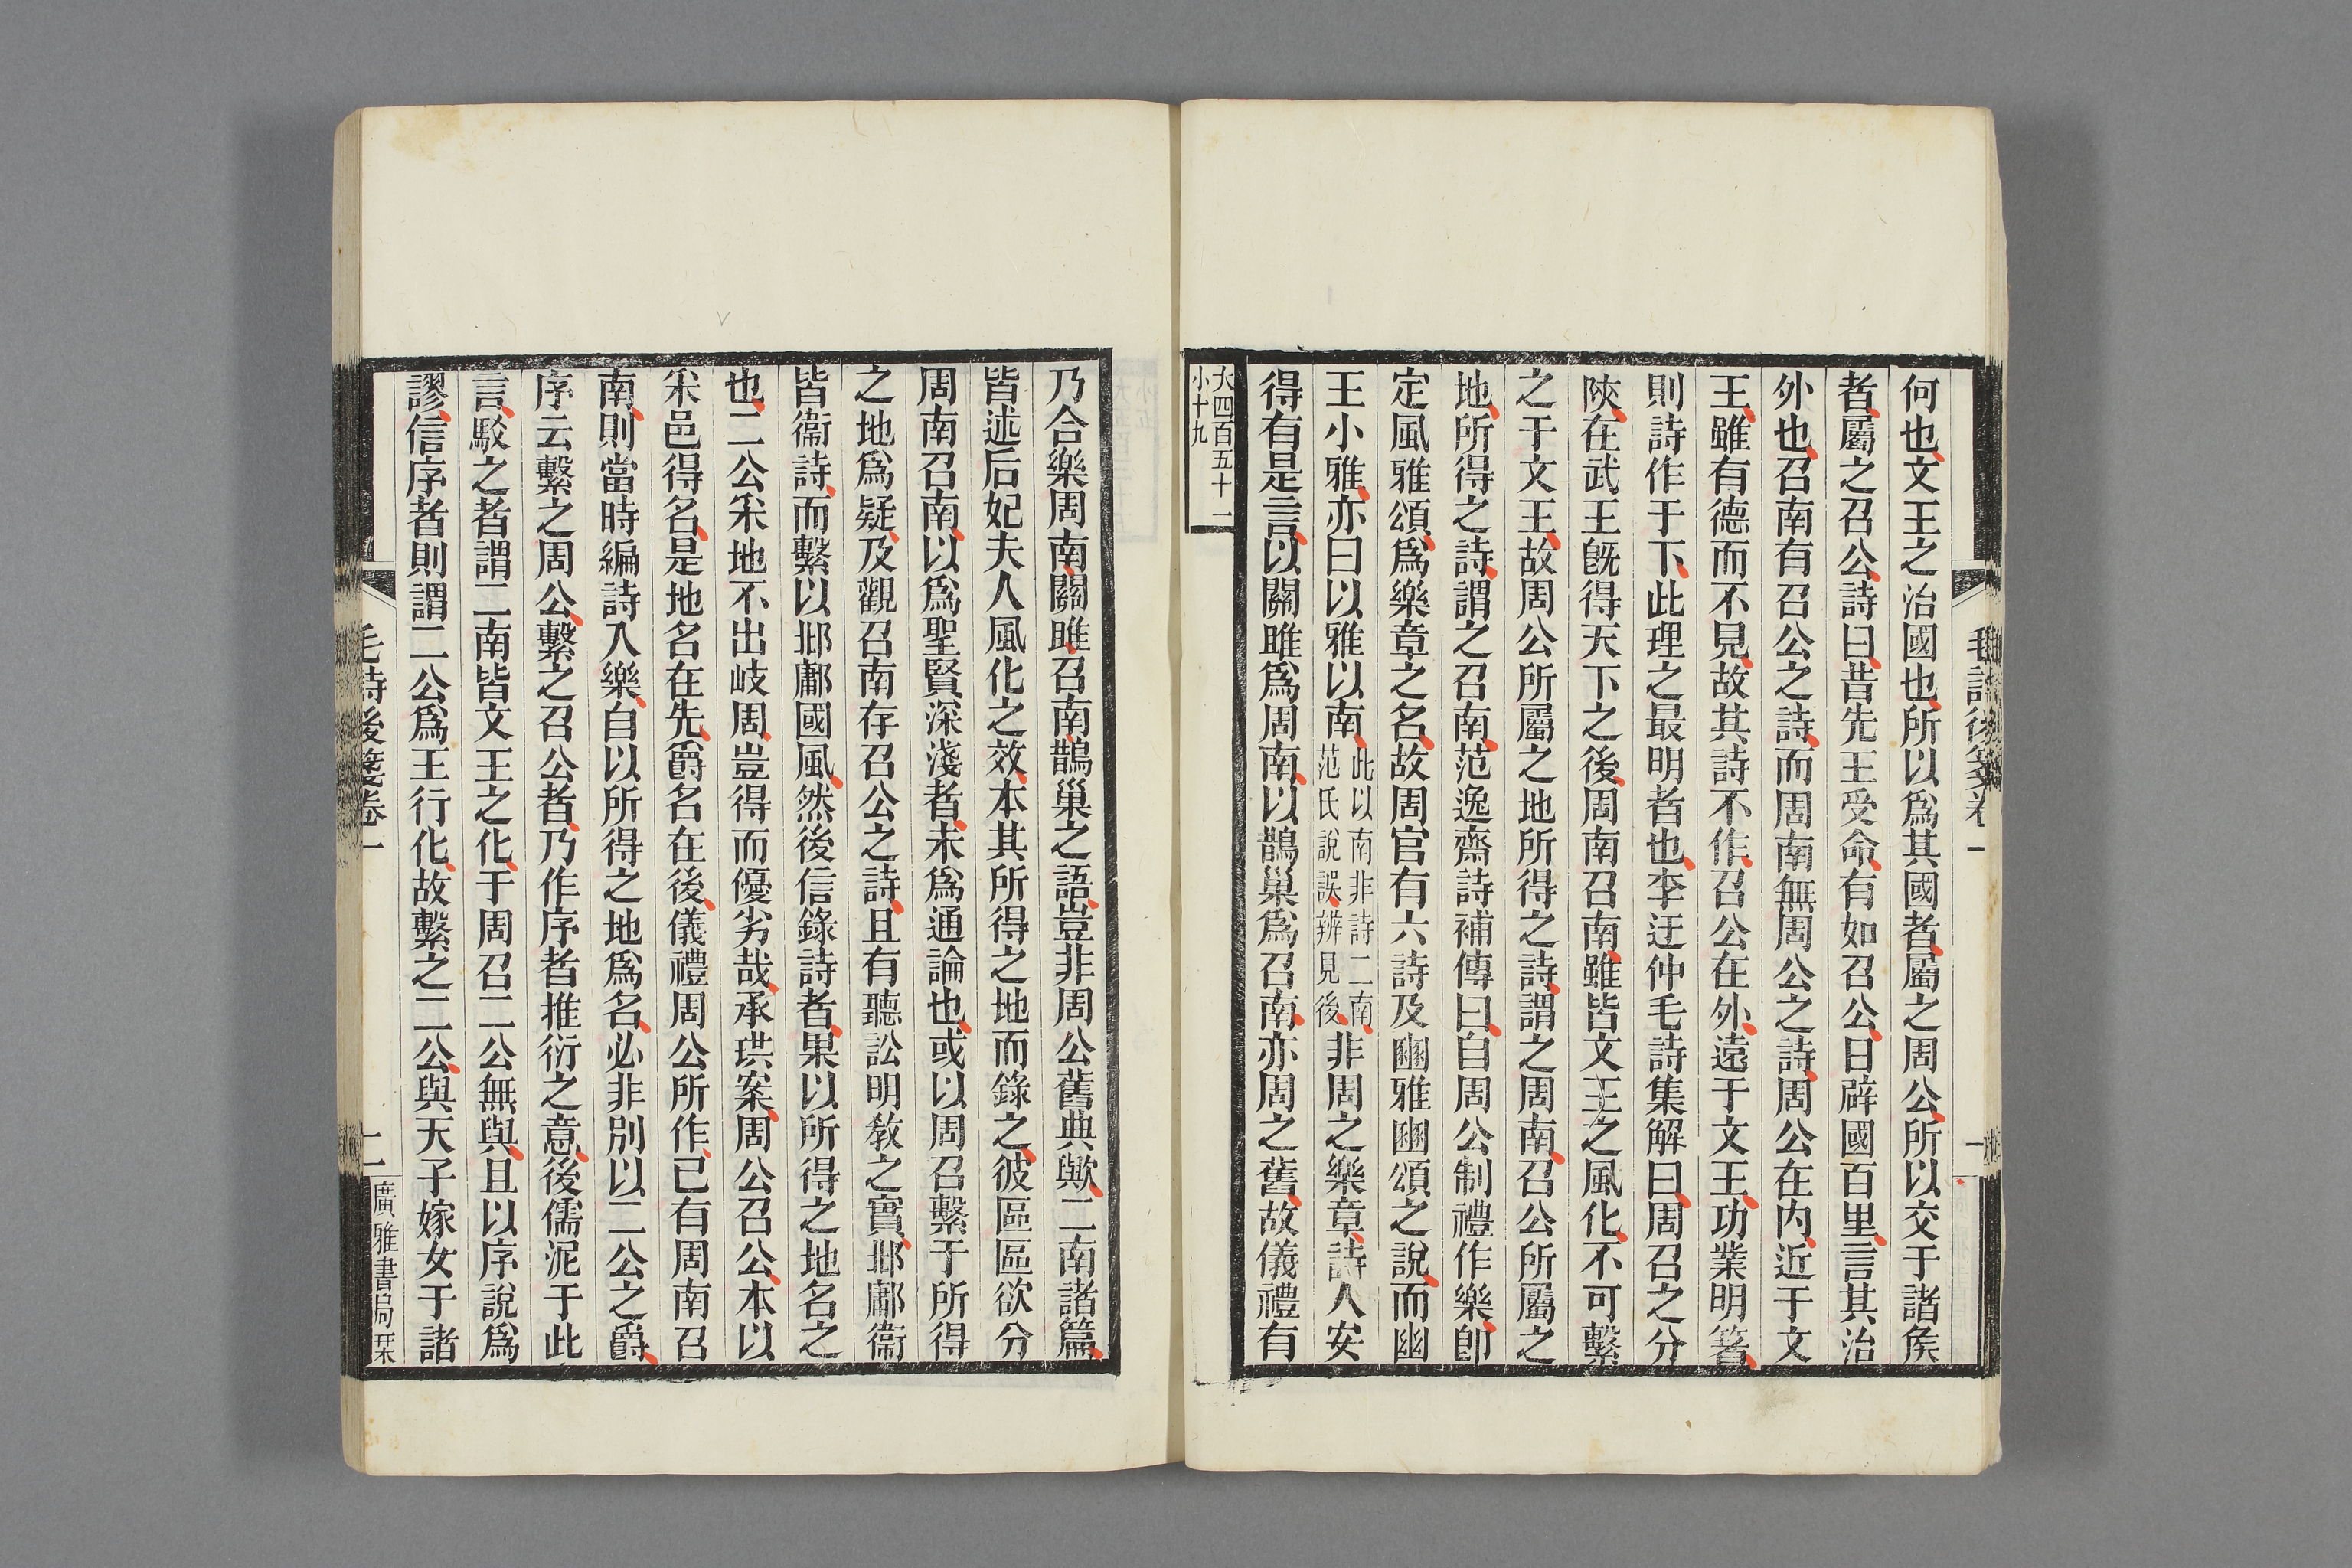 毛詩後箋卷一
一
何也文王之治國也所以爲其國者屬之周公所以交于諸矦
者屬之召公詩曰昔先王受命有如召公日辟國百里言其治
外也召南有召公之詩而周南無周公之詩周公在内近于文
王雖有德而不見故其詩不作召公在外遠于文王功業明箸
則詩作于下此理之最明者也李迂仲毛詩集解曰周召之分
陝在武王旣得天下之後周南召南雖皆文王之風化不可繫
之于文王故周公所屬之地所得之詩謂之周南召公所屬之
地所得之詩謂之召南范逸齋詩補傳曰自周公制禮作樂卽
定風雅頌爲樂章之名故周官有六詩及豳雅豳頌之說而幽
王小雅亦曰以雅以南此以南非詩二南范氏說誤辨見後非周之樂章詩人安
得有是言以關雎爲周南以鵲巢爲召南亦周之舊故儀禮有
大四百五十一
小十九
乃合樂周南關雎召南鵲巢之語豈非周公舊典歟二南諸篇
皆述后妃夫人風化之效本其所得之地而錄之彼區區欲分
周南召南以爲聖賢深淺者未爲通論也或以周召繫于所得
之地爲疑及觀召南存召公之詩且有聽訟明敎之實邶鄘衞
皆衞詩而繫以邶鄘國風然後信錄詩者果以所得之地名之
也二公采地不出岐周豈得而優劣哉承珙案周公召公本以
采邑得名是地名在先爵名在後儀禮周公所作已有周南召
南則當時編詩入樂自以所得之地爲名必非別以二公之爵
序云繫之周公繫之召公者乃作序者推衍之意後儒泥于此
言駁之者謂二南皆文王之化于周召二公無與且以序說爲
謬信序者則謂二公爲王行化故繫之二公與天子嫁女于諸
毛詩後箋卷一
二
廣雅書局栞